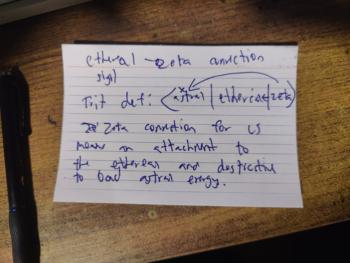 ethereal → zeta connection
sigil
Init def: ⟨astral | | zeta⟩
zeta connection for us
means an attachment to
the ethereal and destructive
to bad astral energy.